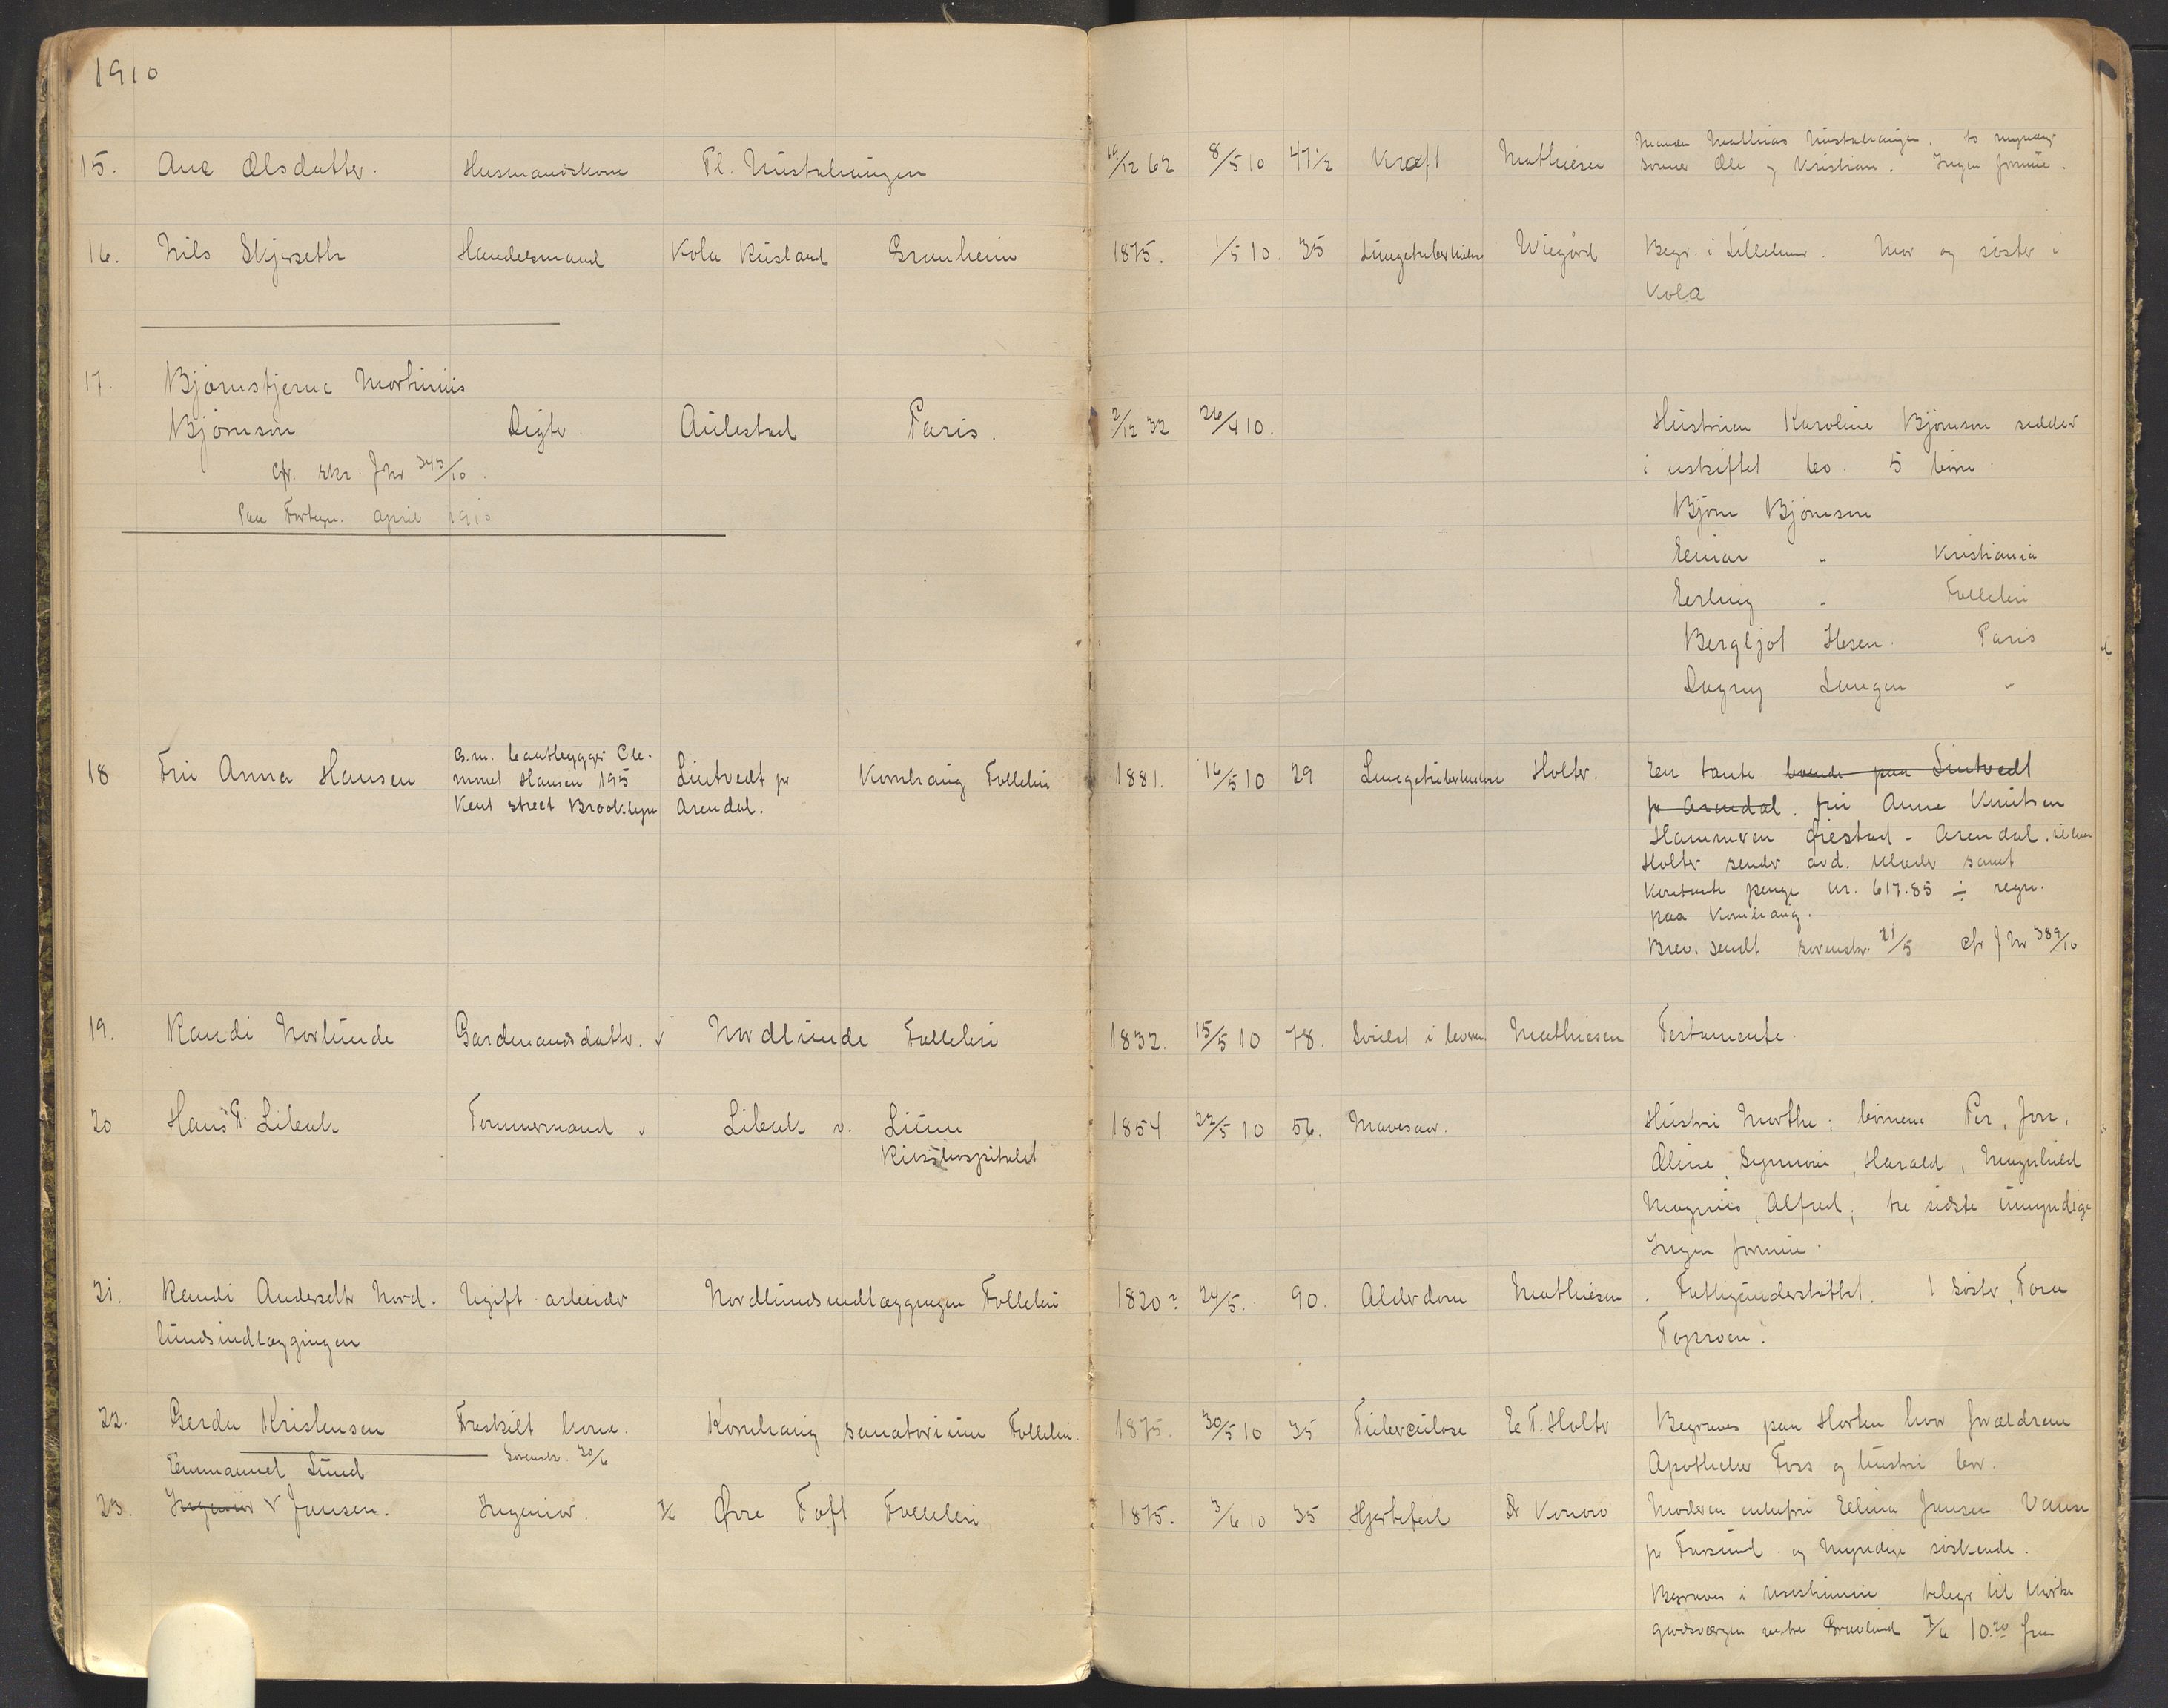 1910
15. Ane Olsdatter. Husmandskone Pl. 19/12 62 8/5 10 47 1/2 Kræft Mathiesen
sønner Ole og Kristian. Ingen formue.
16. Nils Skjerseth Handelsmand Kola Rusland Granheim 1875. 1/5 10. 35 Lungetuberkulose Wiegård Begr. i Lilleham. Mor og søster i
Kola
17. Bjørnstjerne Martinius
Bjørnson Digter. Aulestad Paris. 2/12 32 26/4 10. Hustruen Karoline Bjørnson sidder
cfr. skr. J.Nr 343/10. i uskiftet bo. 5 børn.
Paa Fortegn. april 1910
Bjørn Bjørnson
Einar " Kristiania
Erling " Follebu
Bergljot Ibsen. Paris
Dagny Langen "
18 Fru Anna Hansen G.m. Cle-
ment Hansen 195
Kent Street Brooklyn
Lintvedt pr
Arendal.
Kornhaug Follebu 1881. 16/5 10 29 Lungetuberkulose Holter. En tante boende paa Lintvedt
pr Arendal. fru Anne Knutsen
Hammeren Øiestad - Arendal.
Holter sender avd. klæder samt
Kontante penge kr. 617.85 ÷ regn.
paa Kornhaug.
Brev. sendt sorenskr. 21/5 cfr J Nr 389/10
19. Randi Norlunde Gardmandsdatter. v Nordlunde Follebu 1832. 15/5 10 78. Svulst i leveren Mathiesen Testamente.
20 Hans P. Libak Tømmermand v Libak v. Lium
Rikshospitalet
1854. 22/5 10 56. Mavesaar. Hustru Marthe; børnene Per, Jon,
Oline, Synnøve, Harald, Magnhild
Magnus, Alfred; tre sidste umyndige
Ingen formue.
21. Randi Andersdtr Nord-
lundsindlæggingen
Ugift arbeider Nordlundsindlæggingen Follebu 1820? 24/5. 90. Alderdom Mathiesen. Fattigunderstøttet. 1 søster, Tora
22. Gerda Kristensen Fraskilt kone. Kornhaug sanatorium Follebu. 1875. 30/5 10 35 Tuberculose E T. Holter Begraves paa Horten hvor forældrene
Sorenskr. 30/6 Apotheker Foss og hustru bor.
Emmanuel Lund
23. Ingeniør v Jansen. Ingeniør. Øvre Toft Follebu 1875. 3/6 10 35 Hjertefeil Dr Konow Moderen enkefru Elina Jansen Vanse
pr Farsund. og myndige søskende.
Begraves i telegr til Kirke
7/6 10.20 fm